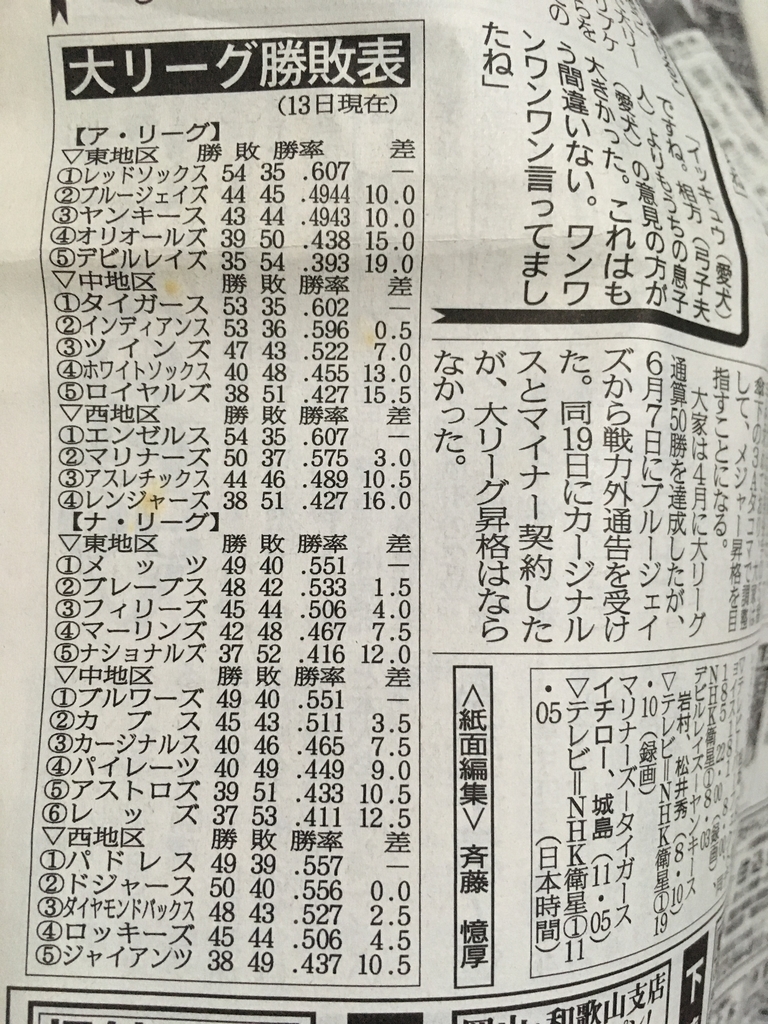 大リーグ勝敗表
(13日現在)
【ア・リーグ】
▽東地区 勝 敗 勝率 差
①レッドソックス 54 35 .607 —
②ブルージェイズ 44 45 .4944 10.0
③ヤンキース 43 44 .4943 10.0
④オリオールズ 39 50 .438 15.0
⑤デビルレイズ 35 54 .393 19.0
▽中地区 勝 敗 勝率 差
①タイガース 53 35 .602 —
②インディアンス 53 36 .596 0.5
③ツインズ 47 43 .522 7.0
④ホワイトソックス 40 48 .455 13.0
⑤ロイヤルズ 38 51 .427 15.5
▽西地区 勝 敗 勝率 差
①エンゼルス 54 35 .607 —
②マリナーズ 50 37 .575 3.0
③アスレチックス 44 46 .489 10.5
④レンジャーズ 38 51 .427 16.0
【ナ・リーグ】
▽東地区 勝 敗 勝率 差
①メッツ 49 40 .551 —
②ブレーブス 48 42 .533 1.5
③フィリーズ 45 44 .506 4.0
④マーリンズ 42 48 .467 7.5
⑤ナショナルズ 37 52 .416 12.0
▽中地区 勝 敗 勝率 差
①ブルワーズ 49 40 .551 —
②カブス 45 43 .511 3.5
③カージナルス 40 46 .465 7.5
④パイレーツ 40 49 .449 9.0
⑤アストロズ 39 51 .433 10.5
⑥レッズ 37 53 .411 12.5
▽西地区 勝 敗 勝率 差
①パドレス 49 39 .557 —
②ドジャース 50 40 .556 0.0
③ダイヤモンドバックス 48 43 .527 2.5
④ロッキーズ 45 44 .506 4.5
⑤ジャイアンツ 38 49 .437 10.5
イッキュウ(愛犬)
ですね。相方(弓子夫
人)よりもうちの息子
(愛犬)の意見の方が
大きかった。これはも
う間違いない。ワンワ
ンワンワン言ってまし
たね」
して、メジャー昇格を目
指すことになる。
大家は4月に大リーグ
通算50勝を達成したが、
6月7日にブルージェイ
ズから戦力外通告を受け
た。同19日にカージナル
スとマイナー契約した
が、大リーグ昇格はなら
なかった。
デビルレイズーヤンキース
岩村、松井秀(8・10)
▽テレビ=NHK衛星①19
・10(録画)
マリナーズータイガース
イチロー、城島(11・05)
▽テレビ=NHK衛星①11
・05 (日本時間)
＜紙面編集＞ 斉藤 憶厚
和歌山支店
下